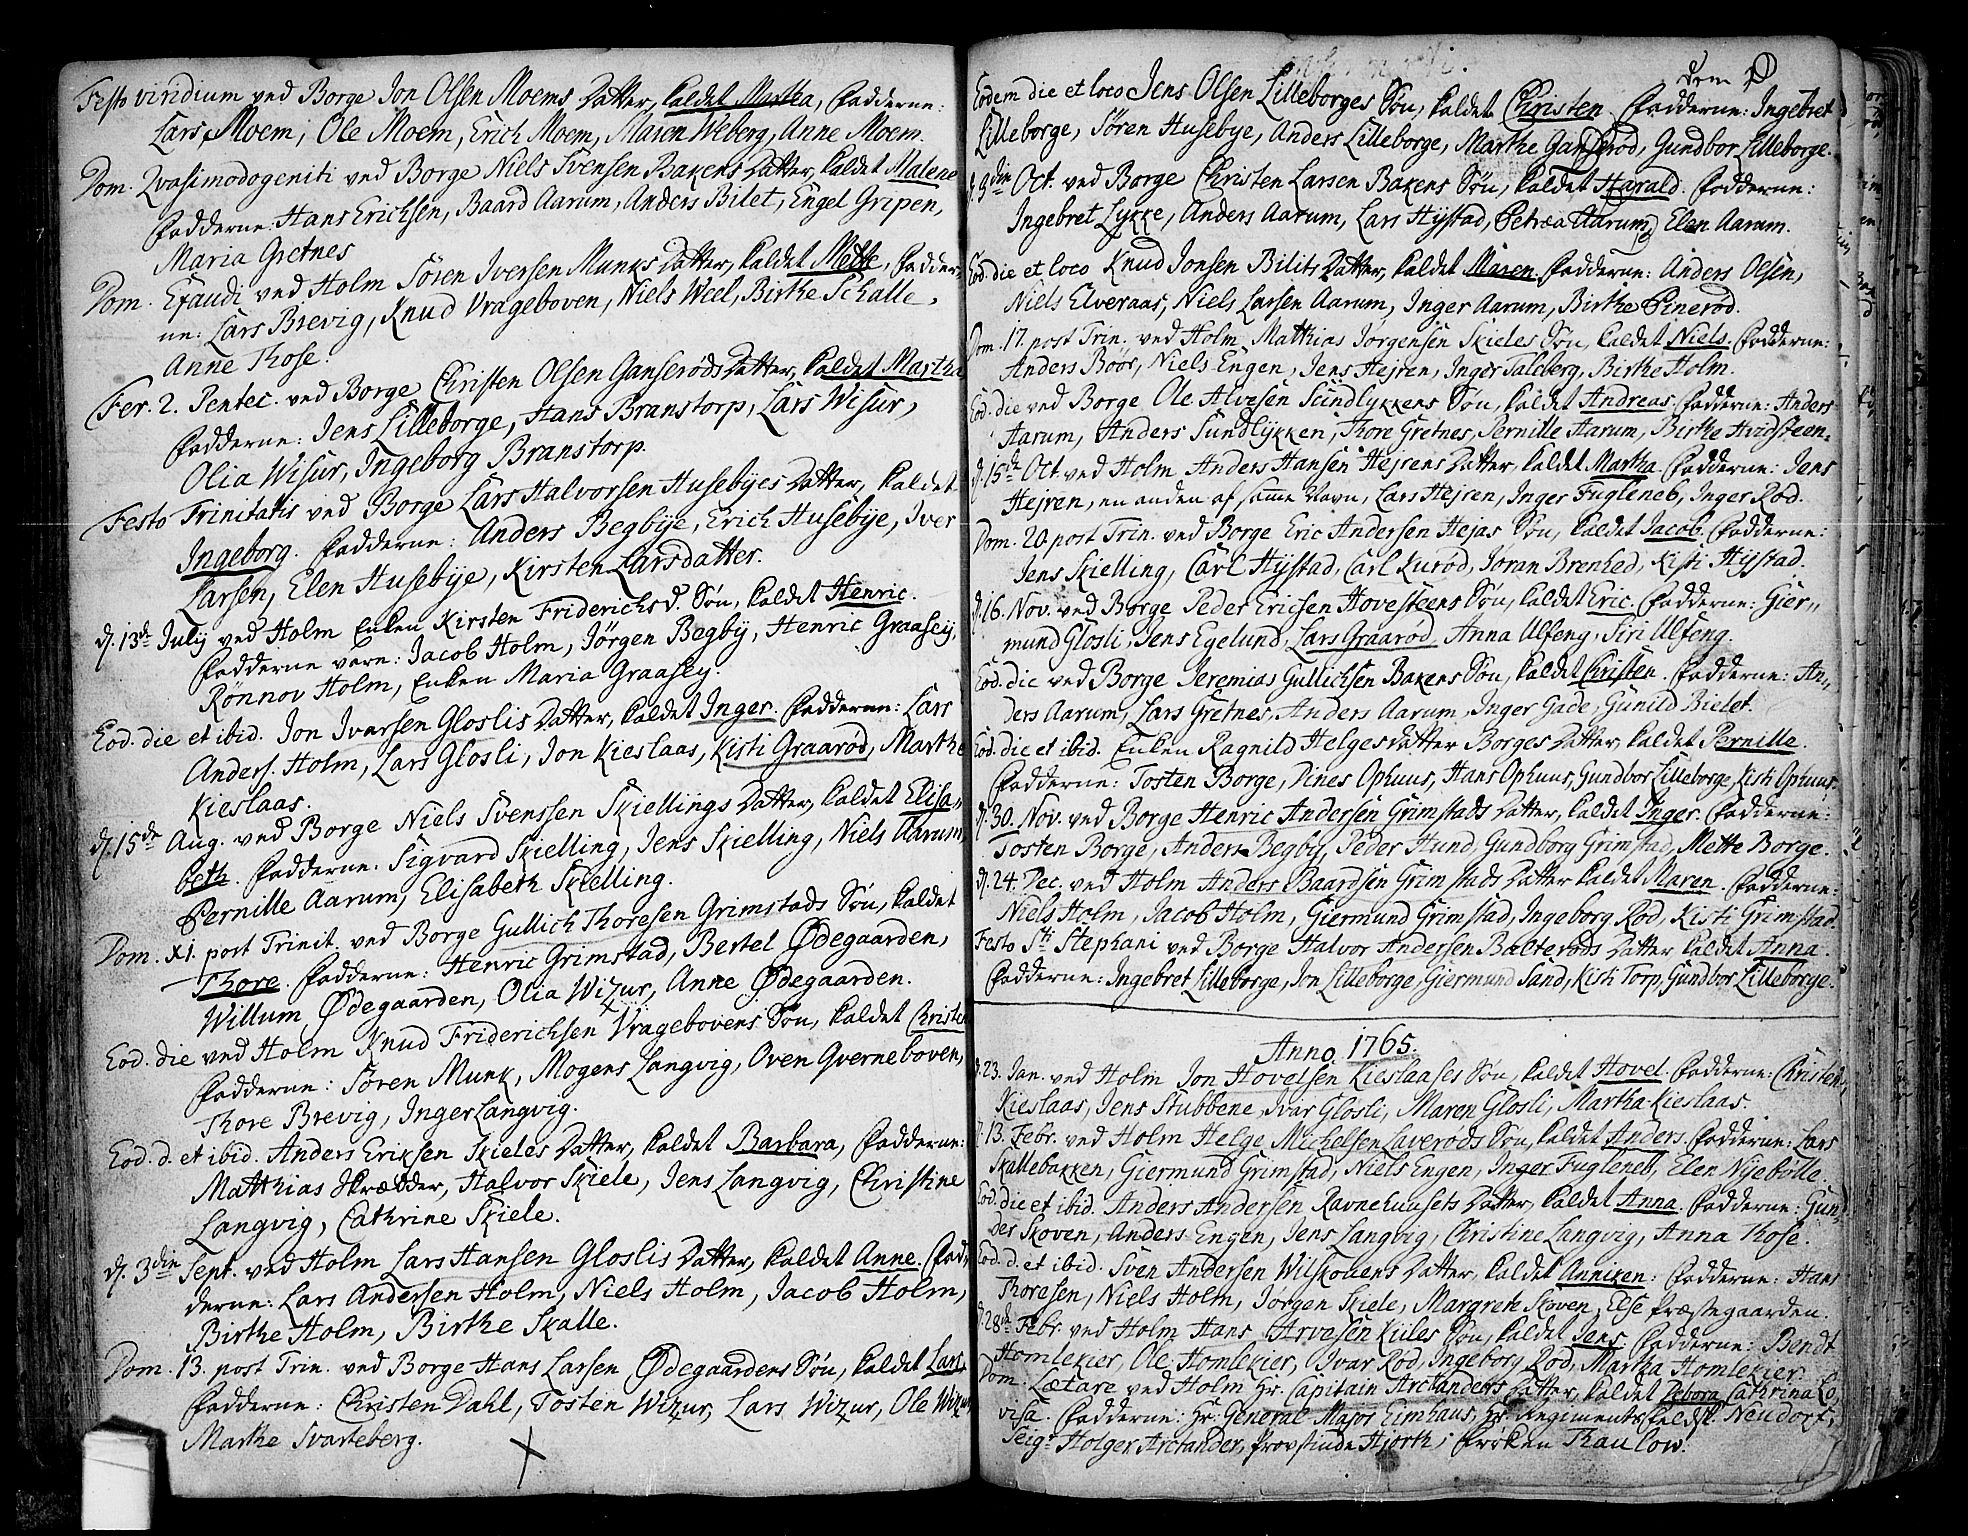 Festo viridium ved Borge Jon Olsen Moems Datter, kaldet Martha, Fadderne:
Lars Moem, Ole Moem, Erich Moem, Maren Weberg, Anne Moem.
Dom. Qvasimodogeniti ved Borge Niels Svensen Bakens Datter, kaldet Malene
Fadderne: Hans Erichsen, Baard Aarum, Anders Bilet, Engel Gripen,
Maria Gretnes
Dom. Exaudi ved Holm Sören Iversen Munks Datter, kaldet Mette, Fadder-
ne: Lars Brevig, Knud Vrageboven, Niels Weel, Birthe Schalle,
Anne Those.
Fer. 2. Pentec. ved Borge Christen Olsen Ganserøds Datter, kaldet Martha
Fadderne: Jens Lilleborge, Hans Branstorp, Lars Wisur,
Olia Wisur, Ingeborg Branstorp.
Festo Trinitatis ved Borge Lars Halvorsen Husebÿes Datter, kaldet
Ingeborg. Fadderne: Anders Begbÿe, Erich Husebÿe, Iver
Larsen, Elen Husebÿe, Kirsten Larsdatter.
d. 13de Julij ved Holm Enken Kirsten Friderichsd. Søn, kaldet Henric.
Fadderne vare: Jacob Holm, Jörgen Begbÿ, Henric Graasey,
Rönnov Holm, Enken Maria Graasey.
Eod. die et ibid. Jon Ivarsen Gloslis Datter, kaldet Inger. Fadderne: Lars
Anders. Holm, Lars Glosli, Jon Kieslaas, Kisti Graarød, Marthe
Kieslaas.
d. 15de Aug. ved Borge Niels Svenssen Skiellings Datter, kaldet Elisa-
beth. Fadderne: Sigvard Skielling, Jens Skielling, Niels Aarum,
Pernille Aarum, Elisabeth Skielling.
Dom. XI. post Trinit. ved Borge Gullich Thoresen Grimstads Søn, kaldet
Thore. Fadderne: Henric Grimstad, Bertel Ødegaarden,
Willum Ødegaarden, Olia Wizur, Anne Ødegaarden.
Eod. die ved Holm Knud Friderichsen Vragebovens Søn, kaldet Christen
Fadderne: Sören Munk, Mogens Langvig, Oven Qverneboven,
Thore Brevig, Inger Langvig.
Eod. d. et ibid. Anders Eriksen Skieles Datter, kaldet Barbara, Fadderne:
Matthias Skrædder, Halvor Skiele, Jens Langvig, Christine
Langvig, Cathrine Skiele.
d. 3die Sept. ved Holm Lars Hansen Gloslis Datter, kaldet Anne. Fad-
derne: Lars Andersen Holm, Niels Holm, Jacob Holm,
Birthe Holm, Birthe Skalle.
Dom. 13. post Trin. ved Borge Hans Larsen Ødegaardens Søn, kaldet Lars.
Fadderne: Christen Dahl, Tosten Wizur, Lars Wizur, Ole Wizur,
Marthe Svarteberg.
Eodem die et loco Jens Olsen Lilleborges Søn, kaldet Christen. Fadderne: Ingebret
Lilleborge, Sören Husebye, Anders Lilleborge, Marthe Ganserød, Gundbor Lilleborge.
d. 9din Oct. ved Borge Christen Larsen Bakens Søn, kaldet Harald. Fadderne:
Ingebret Lykke, Anders Aarum, Lars Hÿstad, Petræa Aarum, Elen Aarum.
Eod. die et loco Knud Jonsen Bilits Datter, kaldet Maren. Fadderne: Anders Olsen,
Niels Elveraas, Niels Larsen Aarum, Inger Aarum, Birthe Pinerød.
Dom. 17. post Trin. ved Holm Matthias Jørgensen Skieles Søn, kaldet Niels. Fadderne:
Anders Böör, Niels Engen, Jens Hejren, Inger Talberg, Birthe Holm.
Eod. die ved Borge Ole Alvesen Sundlykkens Søn, kaldet Andreas. Fadderne: Anders
Aarum, Anders Sundlÿkken, Thore Gretnes, Pernille Aarum, Birthe Hvidsteen.
d. 15de Oct. ved Holm Anders Hansen Hejrens Datter, kaldet Martha. Fadderne: Jens
Hejren, en anden af samme Navn, Lars Hejren, Inger Fugleneb, Inger Rød.
Dom. 20. post Trin. ved Borge Eric Andersen Hejas Søn, kaldet Jacob. Fadderne:
Jens Skielling, Carl Hÿstad, Carl Kurød, Joran Brenhed, Kisti Hÿstad.
d. 16. Nov. ved Borge Peder Ericsen Hovesteens Søn, kaldet Eric. Fadderne: Gier-
mund Glosli, Jens Egelund, Lars Graarød, Anna Ulfeng, Siri Ulfeng.
Eod. die ved Borge Jeremias Gullichsen Bakens Søn, kaldet Christen. Fadderne: An-
ders Aarum, Lars Gretnes, Anders Aarum, Inger Gade, Gunild Bielet.
Eod. die et ibid. Enken Ragnild Helgesdatter Borges Datter, kaldet Pernille.
Fadderne: Tosten Borge, Dines Ophuus, Hans Ophuus, Gundbor Lilleborge, Kisti Ophuus.
d. 30. Nov. ved Borge Henric Andersen Grimstads Datter, kaldet Inger. Fadderne:
Tosten Borge, Anders Begby, Peder Hund, Gundborg Grimstad, Mette Borge.
d. 24. Dec. ved Holm Anders Baardsen Grimstads Datter kaldet Maren. Fadderne:
Niels Holm, Jacob Holm, Giermund Grimstad, Ingeborg Rød, Kisti Grimstad.
Festo Sti Stephani ved Borge Halvor Andersen Balterøds Datter kaldet Anna.
Fadderne: Ingebret Lilleborge, Jon Lilleborge, Giermund Sand, Kisti Torp, Gundbor Lilleborge.
Anno 1765.
d. 23. Jan. ved Holm Jon Hovelsen Kieslaases Søn, kaldet Hovel. Fadderne: Christen
Kieslaas, Jens Stubbene, Ivar Glosli, Maren Glosli, Martha Kieslaas.
d. 13. Febr. ved Holm Helge Michelsen Laverøds Søn, kaldet Anders. Fadderne: Lars
Skallebakken, Giermund Grimstad, Niels Engen, Inger Fugleneb, Elen Nÿebølle.
Eod. die et ibid. Anders Andersen Ravnehuusets Datter, kaldet Anna. Fadderne: Gun-
der Skoven, Anders Engen, Jens Langvig, Christine Langvig, Anna Those.
Eod. d. et ibid. Sven Andersen Wilskovens Datter, kaldet Anniken: Fadderne: Hans
Thoresen, Niels Holm, Jørgen Skiele, Margrete Skoven, Else Præstegaarden.
d. 28de Febr. ved Holm Hans Arvesen Kiiles Søn, kaldet Jens. Fadderne: Bendt
Homlekier, Ole Homlekier, Ivar Rød, Ingeborg Rød, Martha Homlekier.
Dom. Lætare ved Holm Hr. Capitain Arctanders Datter, kaldet Debora Cathrina Lo-
visa. Fadderne: Hr. General Major Eimhaus, Hr. Regimentsfeldsk. Neudorf,
Seigr. Holger Arctander, Provstinde Hjorth, Frøken Thaulow.